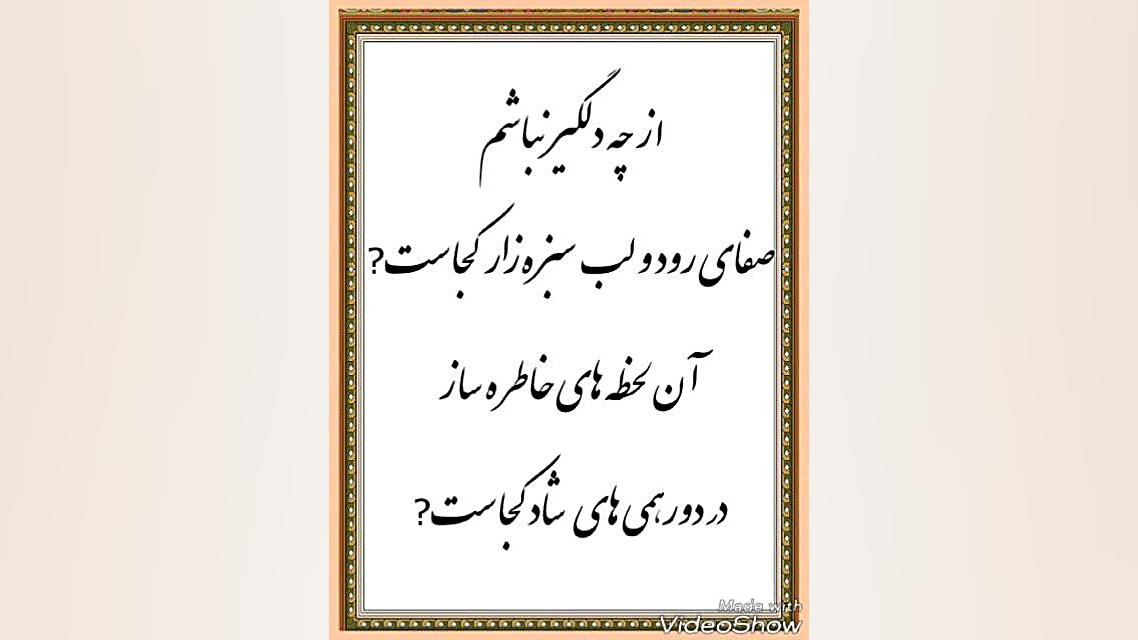 از چه دلگیر نباشم
صفای رود و لب سبزه زار کجاست?
آن لحظه های خاطره ساز
در دورهمی های شاد کجاست?
Made with
VideoShow